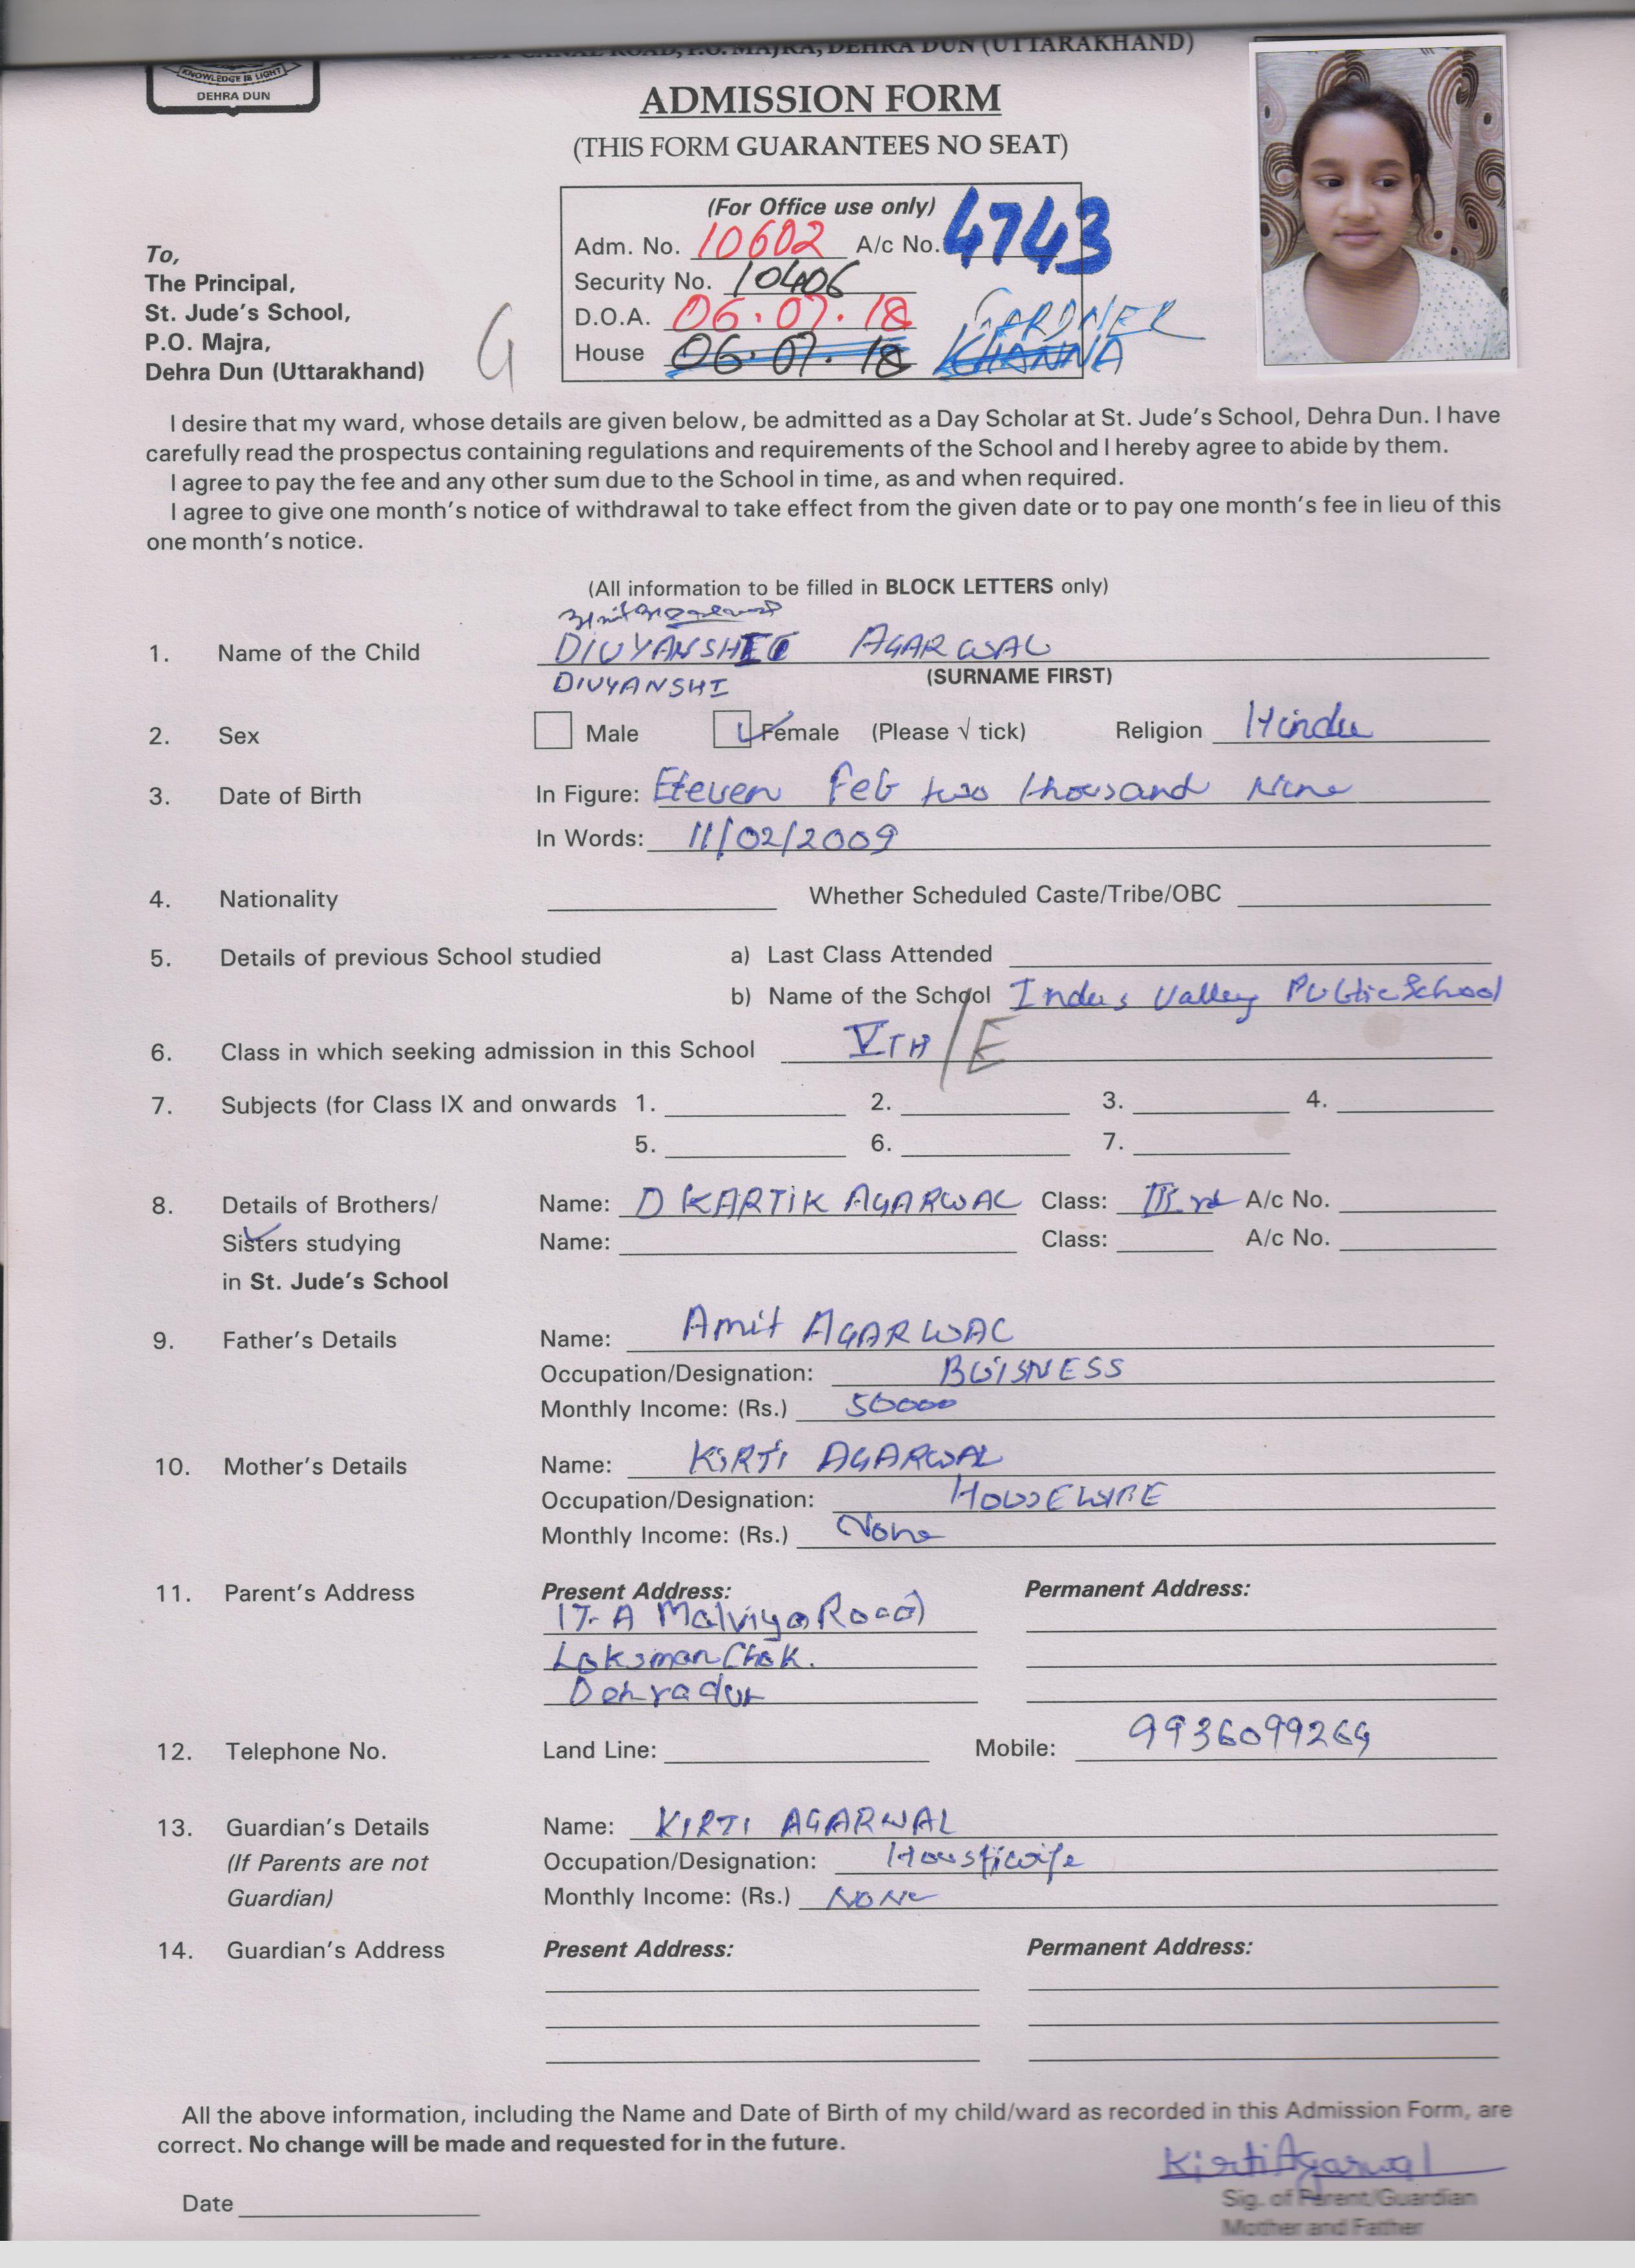 WEST CANAL ROAD, P.O. MAJRA, DEHRA DUN (UTTARAKHAND)
KNOWLEDGE IS LIGHT
DEHRA DUN
ADMISSION FORM
(THIS FORM GUARANTEES NO SEAT)
(For Office use only)
Adm. No. 10602 A/c No. 4743
Security No. 10406
D.O.A. 06.07.18 GARDNER
House 06.07.18 KHANNA
To,
The Principal,
St. Jude's School,
P.O. Majra,
Dehra Dun (Uttarakhand)
G
I desire that my ward, whose details are given below, be admitted as a Day Scholar at St. Jude's School, Dehra Dun. I have
carefully read the prospectus containing regulations and requirements of the School and I hereby agree to abide by them.
I agree to pay the fee and any other sum due to the School in time, as and when required.
I agree to give one month's notice of withdrawal to take effect from the given date or to pay one month's fee in lieu of this
one month's notice.
(All information to be filled in BLOCK LETTERS only)
1. Name of the Child DIVYANSHEE AGARWAL
DIVYANSHI (SURNAME FIRST)
2. Sex Male Female (Please √ tick) Religion Hindu
3. Date of Birth In Figure: Eleven Feb two thousand Nine
In Words: 11/02/2009
4. Nationality Whether Scheduled Caste/Tribe/OBC
5. Details of previous School studied a) Last Class Attended
b) Name of the School Indus Valley Public School
6. Class in which seeking admission in this School VTH/E
7. Subjects (for Class IX and onwards 1. 2. 3. 4.
5. 6. 7.
8. Details of Brothers/ Name: D KARTIK AGARWAL Class: III rd A/c No.
Sisters studying Name: Class: A/c No.
in St. Jude's School
9. Father's Details Name: Amit AGARWAL
Occupation/Designation: BUISNESS
Monthly Income: (Rs.) 50000
10. Mother's Details Name: KIRTI AGARWAL
Occupation/Designation: HOUSEWIFE
Monthly Income: (Rs.) None
11. Parent's Address Present Address: Permanent Address:
17-A Malviya Road
Laksman Chok.
Dehradun
12. Telephone No. Land Line: Mobile: 9936099269
13. Guardian's Details Name: KIRTI AGARWAL
(If Parents are not Occupation/Designation: Housfiwife
Guardian) Monthly Income: (Rs.) NONE
14. Guardian's Address Present Address: Permanent Address:
All the above information, including the Name and Date of Birth of my child/ward as recorded in this Admission Form, are
correct. No change will be made and requested for in the future.
Kirti Agarwal
Date Sig. of Parent/Guardian
Mother and Father